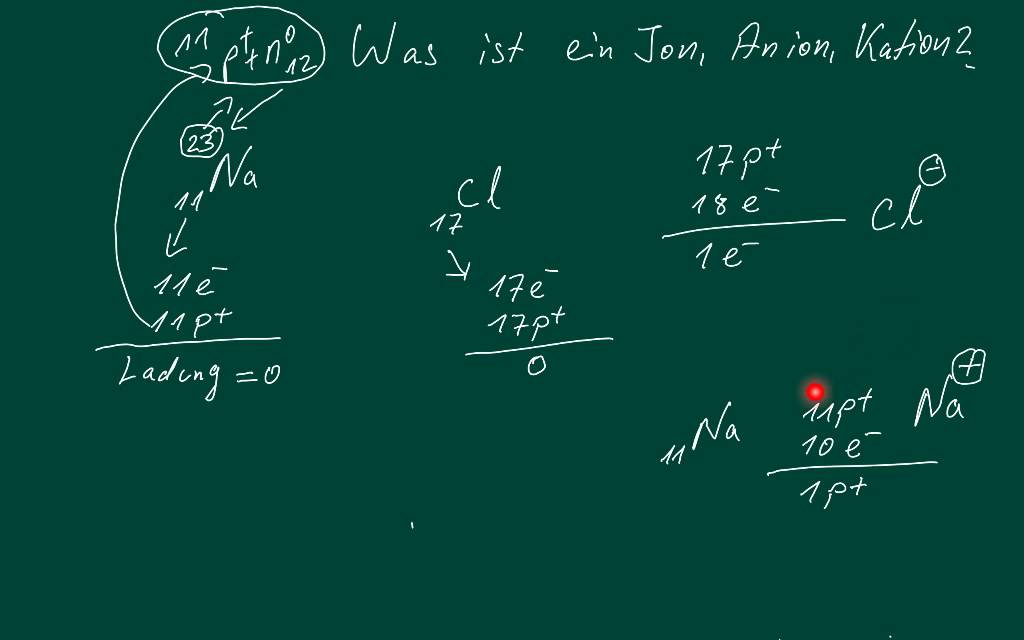 11 p⁺ + n⁰ 12
Was ist ein Jon, Anion, Kation?
23
11 Na
11 e⁻
11 p⁺
Ladung = 0
17 Cl
17 e⁻
17 p⁺
0
17 p⁺
18 e⁻
1 e⁻
Cl ⊖
11 Na
11 p⁺
10 e⁻
1 p⁺
Na ⊕